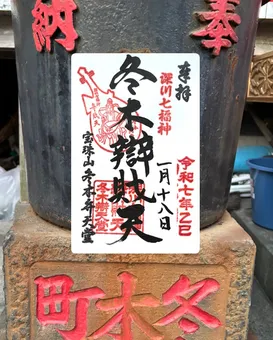 奉納
奉拝
深川七福神
一月十八日
令和七年乙巳
冬木辯財天
宝珠山冬木弁天堂
冬木町